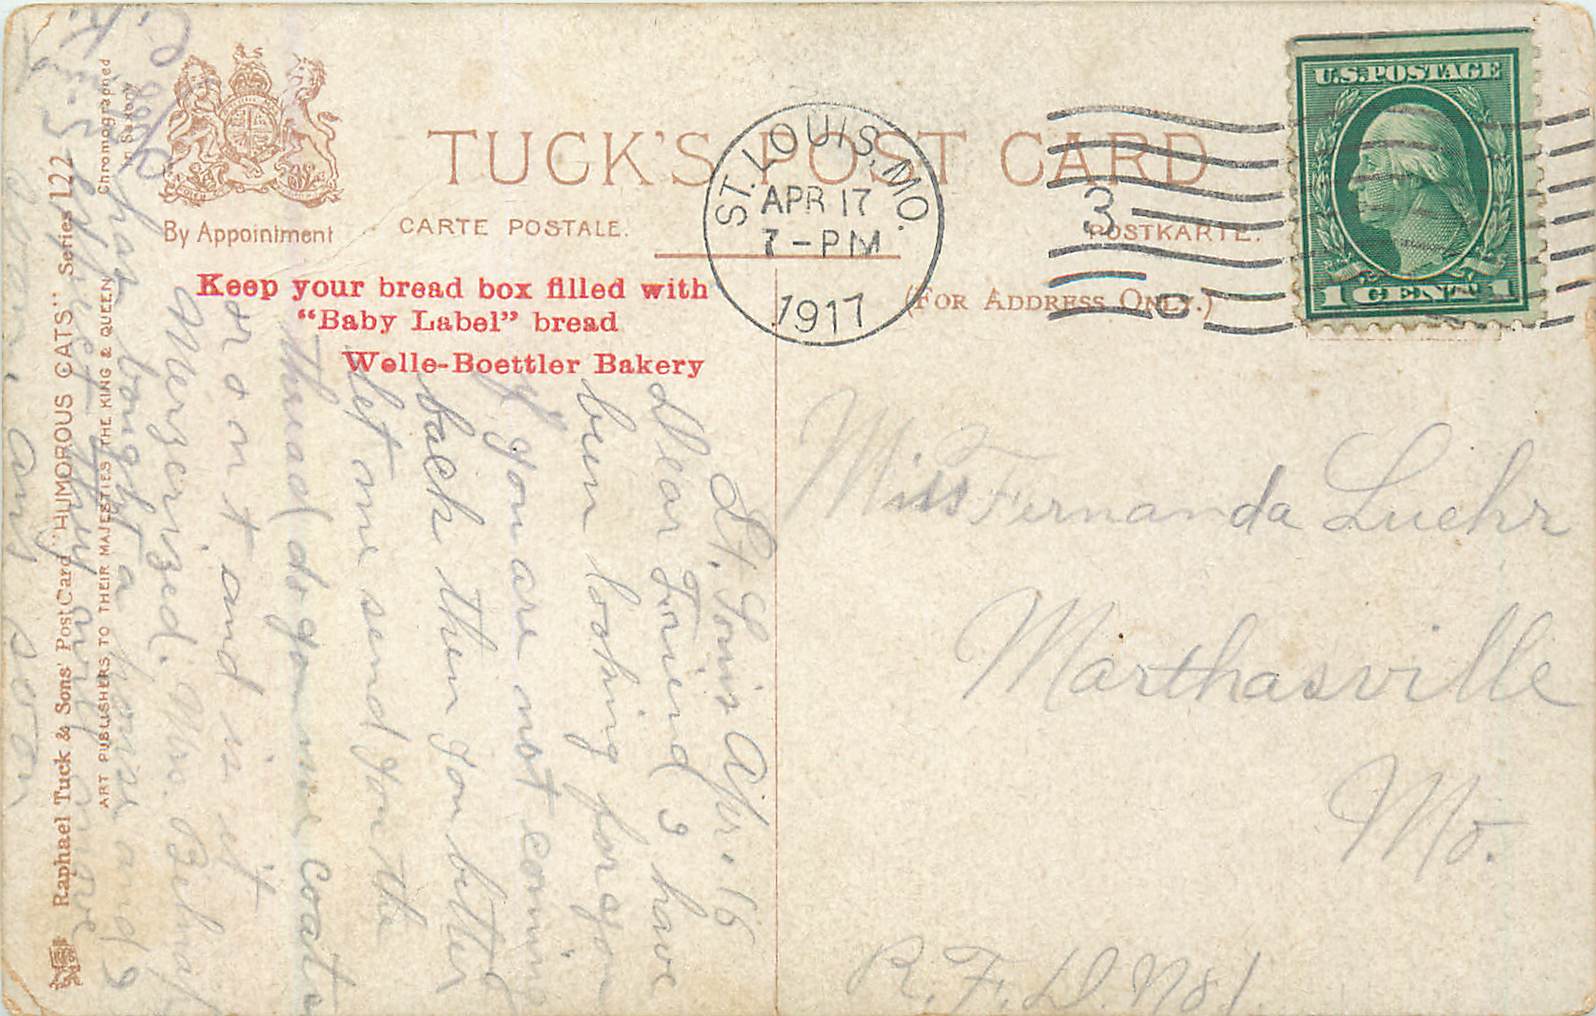 TUCK'S POST CARD
By Appointment
CARTE POSTALE.
POSTKARTE.
(FOR ADDRESS ONLY.)
Keep your bread box filled with
"Baby Label" bread
Welle-Boettler Bakery
ST. LOUIS, MO.
APR 17
7-PM
1917
3
U.S. POSTAGE
1 CENTS 1
Miss Fernanda Luehr
Marthasville
Mo.
R. F. D. No 1
St. Louis Apr. 16
Dear Friend I have
been looking for you
if you are not coming
back then you better
let me send you the
thread do you use coats
or o n t and is it
Merzerized. Mrs.
has bought a house and I
expect they will move
soon.
Raphael Tuck & Sons' Post Card "HUMOROUS CATS" Series 122
ART PUBLISHERS TO THEIR MAJESTIES THE KING & QUEEN
Chromographed
in Saxony